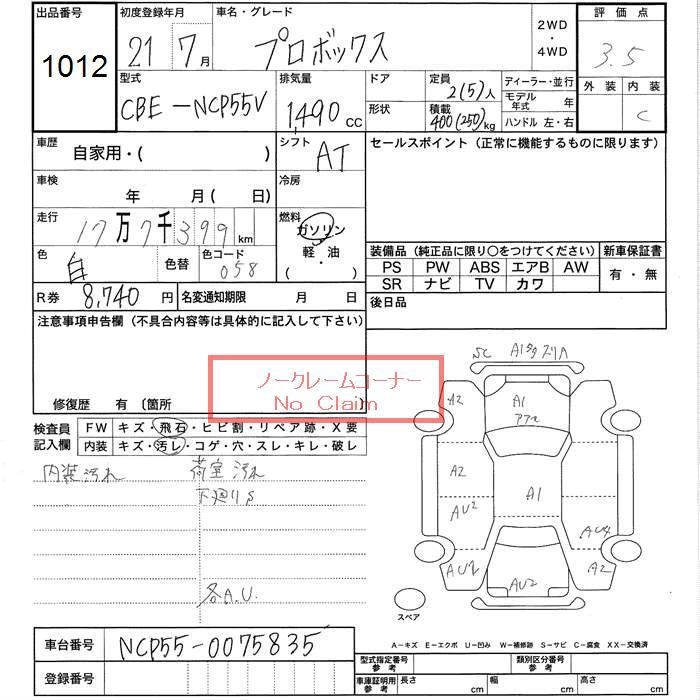 出品番号 初度登録年月 車名・グレード 評価点
1012 21 7月 プロボックス 2WD ・ 4WD 3.5
型式 排気量 ドア 定員 ディーラー・並行 外装 内装
CBE-NCP55V 1,490 CC 2(5)人 モデル年式 年 C
形状 積載 400(250)kg ハンドル 左・右
車歴 自家用・( ) シフト AT セールスポイント(正常に機能するものに限ります)
車検 年 月( 日) 冷房
走行 17万7千399km 燃料 ガソリン
軽・油
( ・ )
色 白 色替 色コード 058
装備品(純正品に限り○をつけてください) 新車保証書
PS PW ABS エアB AW 有・無
SR ナビ TV カワ
R券 8,740円 名変通知期限 月 日 後日品
注意事項申告欄(不具合内容等は具体的に記入して下さい)
ノークレームコーナー
No Claim
修復歴 有〔箇所
検査員 FW キズ・飛石・ヒビ割・リペア跡・X要
記入欄 内装 キズ・汚レ・コゲ・穴・スレ・キレ・破レ
内装汚れ 荷室汚れ
下廻りS
各A.U.
SC A1
A2 A1
A2 A1
AU2 AU4
AU2 AU2 A2
スペア
A-キズ E-エクボ U-凹み W-補修跡 S-サビ C-腐食 XX-交換済
車台番号 NCP55-0075835
型式指定番号 参考 類別区分番号 参考
登録番号 車庫証明用 参考 長さ cm 幅 cm 高さ cm